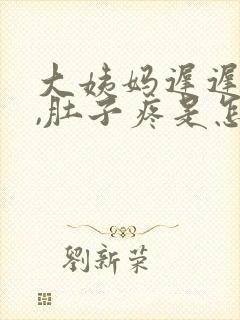 大姨妈迟迟
,肚子疼是怎
劉新荣